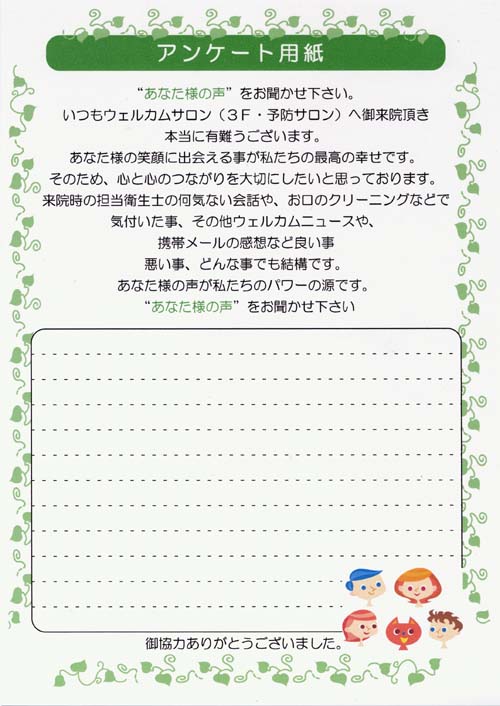 アンケート用紙
“あなた様の声”をお聞かせ下さい。
いつもウェルカムサロン（３Ｆ・予防サロン）へ御来院頂き
本当に有難うございます。
あなた様の笑顔に出会える事が私たちの最高の幸せです。
そのため、心と心のつながりを大切にしたいと思っております。
来院時の担当衛生士の何気ない会話や、お口のクリーニングなどで
気付いた事、その他ウェルカムニュースや、
携帯メールの感想など良い事
悪い事、どんな事でも結構です。
あなた様の声が私たちのパワーの源です。
“あなた様の声”をお聞かせ下さい
御協力ありがとうございました。